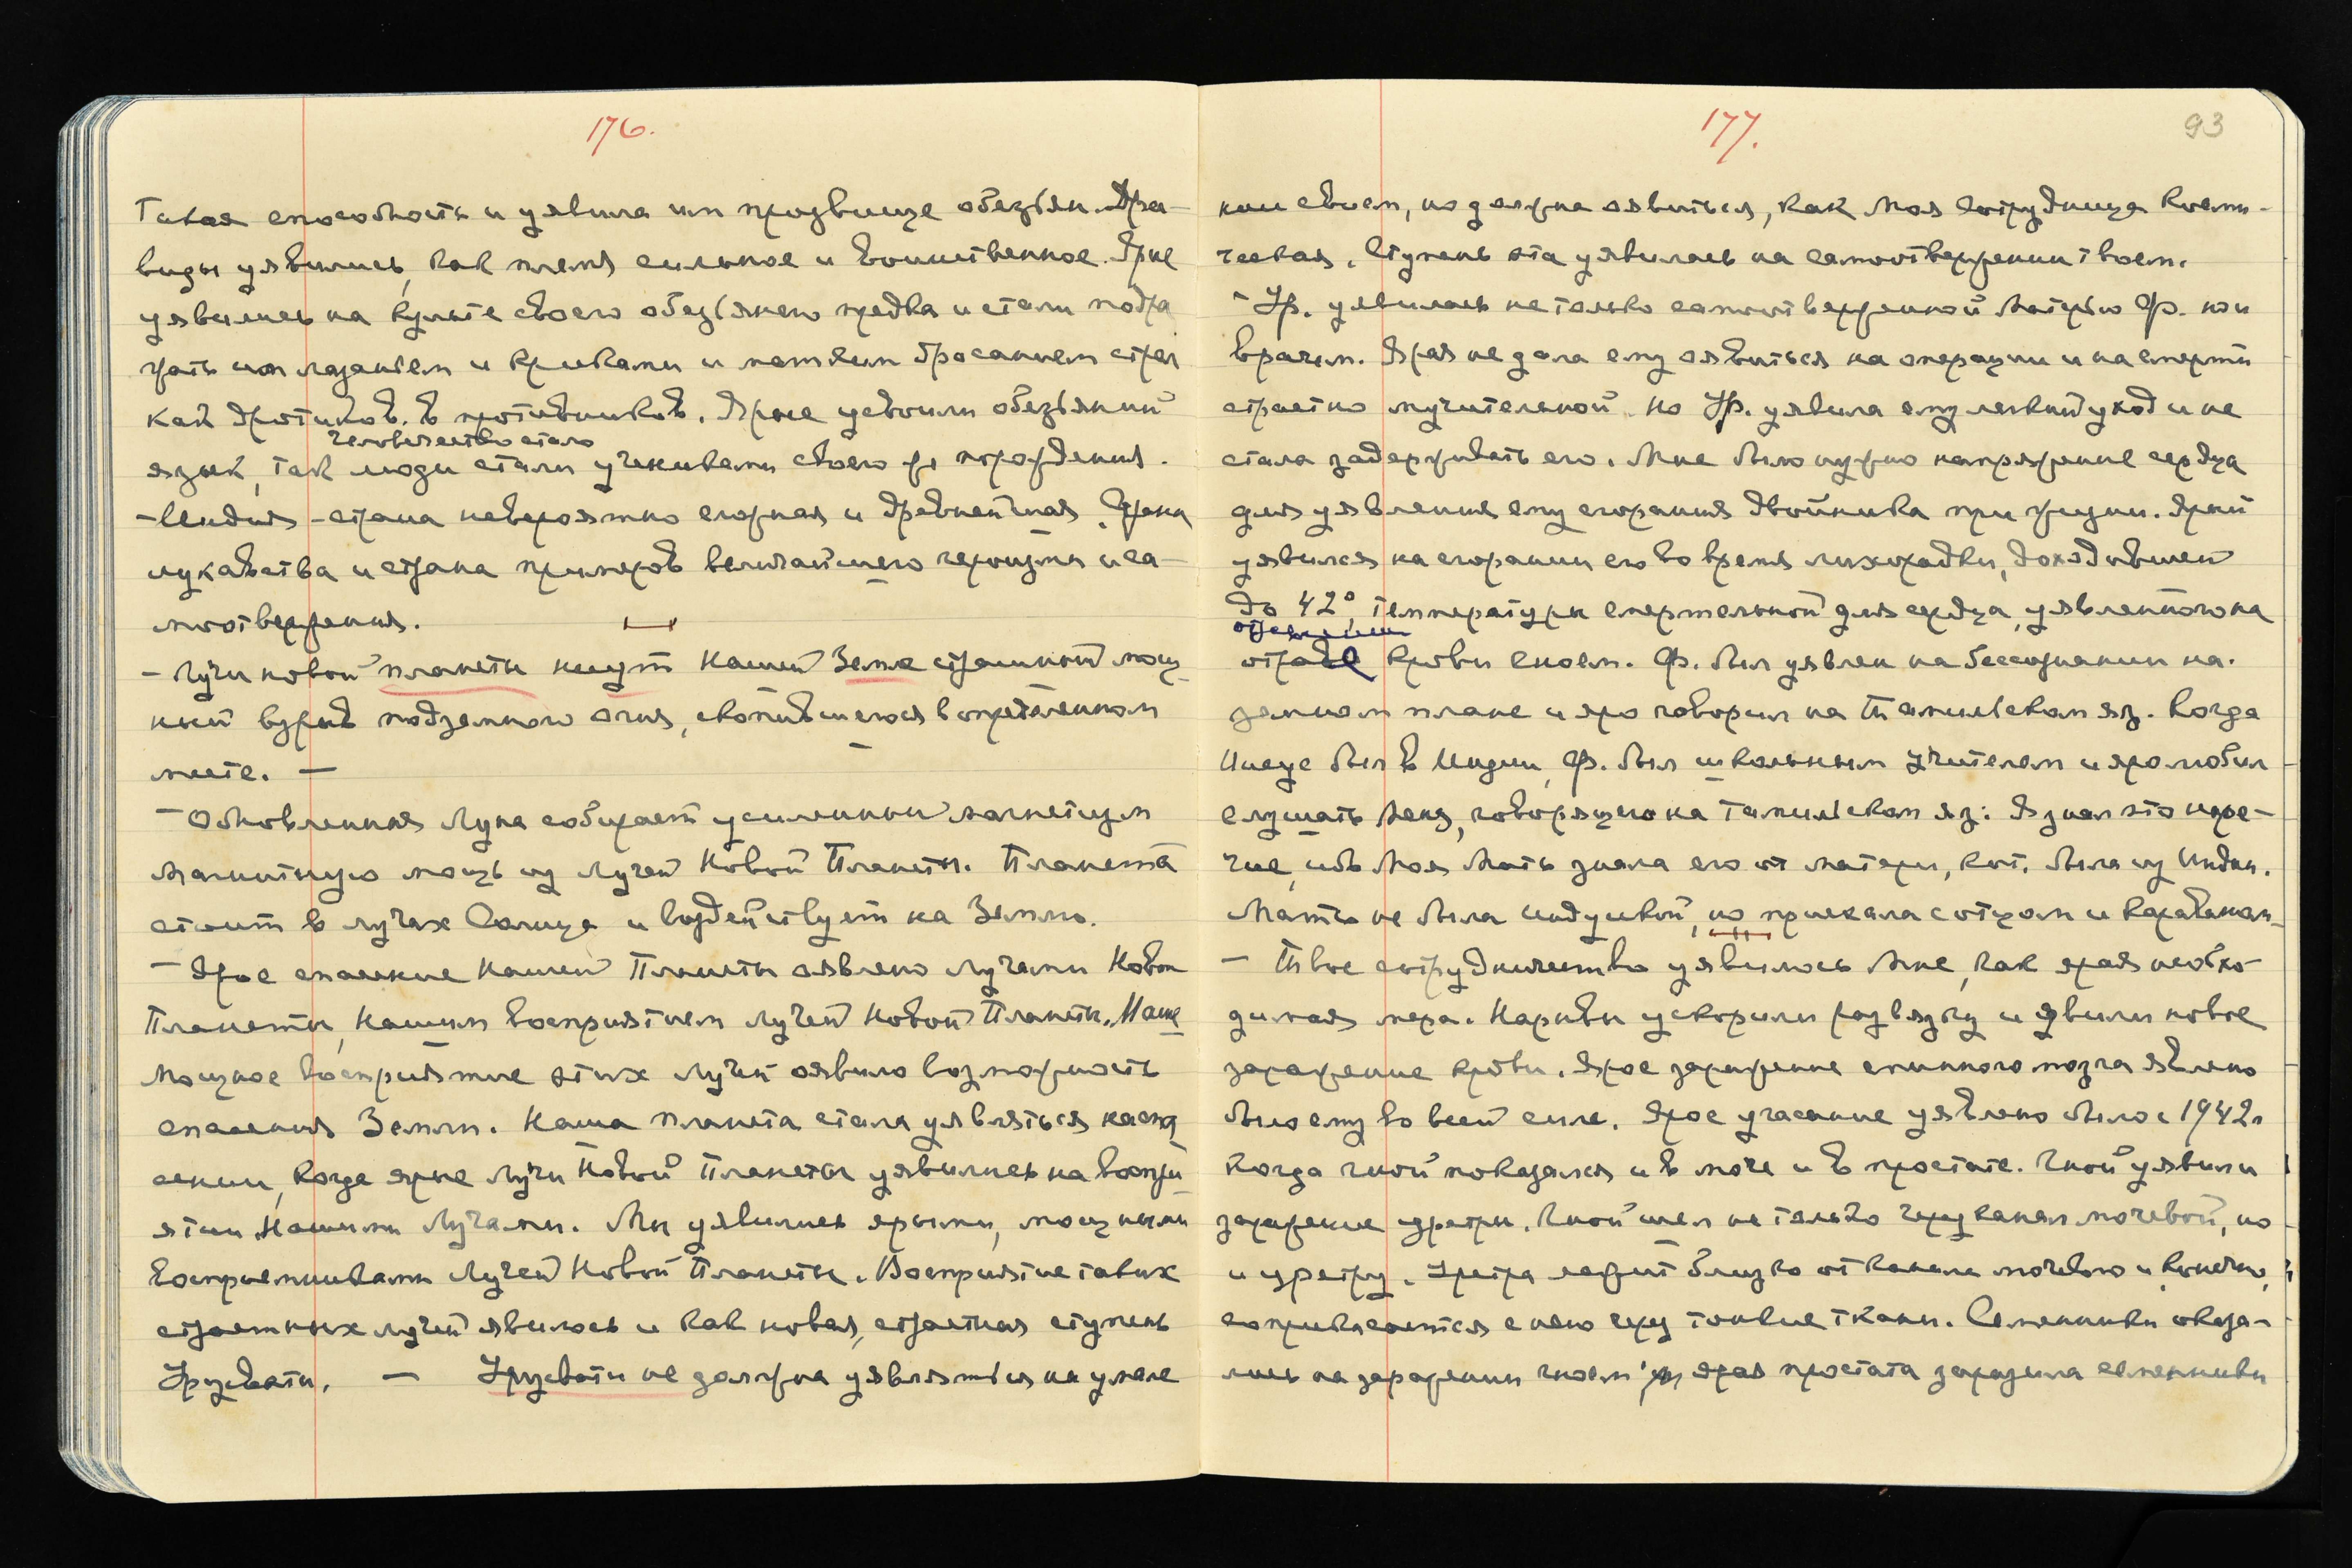 176.
Такая способность и уявила им прозвище обезьян. Дра-
виды уявились, как племя сильное и воинственное. Ярые
уявились на культе своего обезьяньего предка и стали подра
жать им лазаньем и криками и метким бросанием стрел
как дротиков. в противников. Ярые усвоили обезьяний
человечество стало
язык, так люди стали учениками своего порождения.
- Индия - страна невероятно сложная и древнейшая. Страна
лукавства и страна примеров величайшего героизма и са-
моотвержения.
- Лучи новой планеты несут нашей Земле страшный мощ-
ный взрыв подземного огня, скопившегося в определенном
месте. —
- Обновленная Луна собирает усиленный магнетизм
магнитную мощь из лучей Новой Планеты. Планета
стоит в лучах Солнца и воздействует на Землю.
- Ярое спасение нашей Планеты оявлено Лучами Новой
Планеты, нашим восприятием лучей Новой Планеты. Наше
мощное восприятие этих Лучей оявило возможность
спасения Земли. Наша планета стала уявляться на спа
сении, когда ярые Лучи Новой Планеты уявились на воспри-
ятии Нашими Лучами. Мы уявились ярыми, мощными
восприемниками Лучей Новой Планеты. Восприятие таких
страстных лучей явилось и как новая, страстная ступень
Урусвати. — Урусвати не должна уявляться на умале
177.
93
нии своем, но должна оявиться, как Моя Сотрудница Косми-
ческая. Ступень эта уявилась на самоотвержении твоем.
- Ур. уявилась не только самоотверженной Матерью Ф. но и
врачем. Ярая не дала ему оявиться на операции и на смерти
страстно мучительной. Но Ур. уявила ему легкий уход и не
стала задерживать его. Мне было нужно напряжение сердца
для уявления ему сгорания двойника при жизни. Ярый
уявился на сгорании его во время лихорадки, доходившей
до 42° температуры смертельной для сердца, уявленного на
отравлении
отраве крови гноем. Ф. был уявлен на бессознании на.
земном плане и яро говорил на Тамильском яз. Когда
Иисус был в Индии, Ф. был школьным учителем и яро любил
слушать Меня, говорящего на Тамильском яз: Я знал это наре-
чие, ибо Моя Мать знала его от матери, кот. была из Индии.
Мать не была индуской, но приехала с отцом и караваном
- Твое сотрудничество уявилось Мне, как ярая необхо-
димая мера. Нарывы ускорили развязку и явили новое
заражение крови. Ярое заражение спинного мозга явлено
было ему во всей силе. Ярое угасание уявлено было с 1942г
когда гной показался и в моче и в простате. Гной уявили
заражение уретры. Гной шел не только через канал мочевой, но
и уретру. Уретра лежит близко от канала мочевого и, конечно,
соприкасается с него через тонкие ткани. Семенники оказа-
лись на заражении гноем, ярая простата заразила семенники